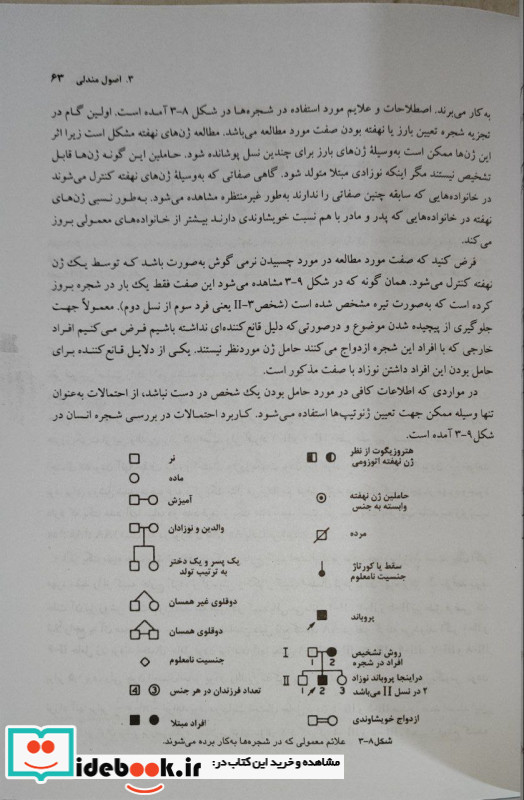 ۳. اصول مندلی ۶۳
به‌کار می‌برند. اصطلاحات و علایم مورد استفاده در شجره‌ها در شکل ۸-۳ آمده است. اولین گام در
تجزیه شجره تعیین بارز یا نهفته بودن صفت مورد مطالعه می‌باشد. مطالعه ژن‌های نهفته مشکل است زیرا اثر
این ژن‌ها ممکن است به‌وسیلهٔ ژن‌های بارز برای چندین نسل پوشانده شود. حاملین این گونه ژن‌ها قابل
تشخیص نیستند مگر اینکه نوزادی مبتلا متولد شود. گاهی صفاتی که به‌وسیلهٔ ژن‌های نهفته کنترل می‌شوند
در خانواده‌هایی که سابقه چنین صفاتی را ندارند به‌طور غیرمنتظره مشاهده می‌شود. به‌طور نسبی ژن‌های
نهفته در خانواده‌هایی که پدر و مادر با هم نسبت خویشاوندی دارند بیشتر از خانواده‌های معمولی بروز
می‌کند.
فرض کنید که صفت مورد مطالعه در مورد چسبیدن نرمی گوش به‌صورت باشد که توسط یک ژن
نهفته کنترل می‌شود. همان گونه که در شکل ۹-۳ مشاهده می‌شود این صفت فقط یک بار در شجره بروز
کرده است که به‌صورت تیره مشخص شده است (شخص ۳-II یعنی فرد سوم از نسل دوم). معمولاً جهت
جلوگیری از پیچیده شدن موضوع و درصورتی‌که دلیل قانع‌کننده‌ای نداشته باشیم فرض می‌کنیم افراد
خارجی که با افراد این شجره ازدواج می‌کنند حامل ژن موردنظر نیستند. یکی از دلایل قانع‌کننده برای
حامل بودن این افراد داشتن نوزاد با صفت مذکور است.
در مواردی که اطلاعات کافی در مورد حامل بودن یک شخص در دست نباشد، از احتمالات به‌عنوان
تنها وسیله ممکن جهت تعیین ژنوتیپ‌ها استفاده می‌شود. کاربرد احتمالات در بررسی شجره انسان در
شکل ۹-۳ آمده است.
هتروزیگوت از نظر
ژن نهفته اتوزومی
حاملین ژن نهفته
وابسته به جنس
مرده
سقط یا کورتاژ
جنسیت نامعلوم
پروباند
روش تشخیص
افراد در شجره
I
1 2
دراینجا پروباند نوزاد
۲ در نسل II می‌باشد
II
1 2 3
ازدواج خویشاوندی
نر
ماده
آمیزش
والدین و نوزادان
یک پسر و یک دختر
به ترتیب تولد
دوقلوی غیر همسان
دوقلوی همسان
جنسیت نامعلوم
تعداد فرزندان در هر جنس
4 3
افراد مبتلا
شکل ۸-۳ علائم معمولی که در شجره‌ها به‌کار برده می‌شوند.
مشاهده و خرید این کتاب در:
idebook.ir